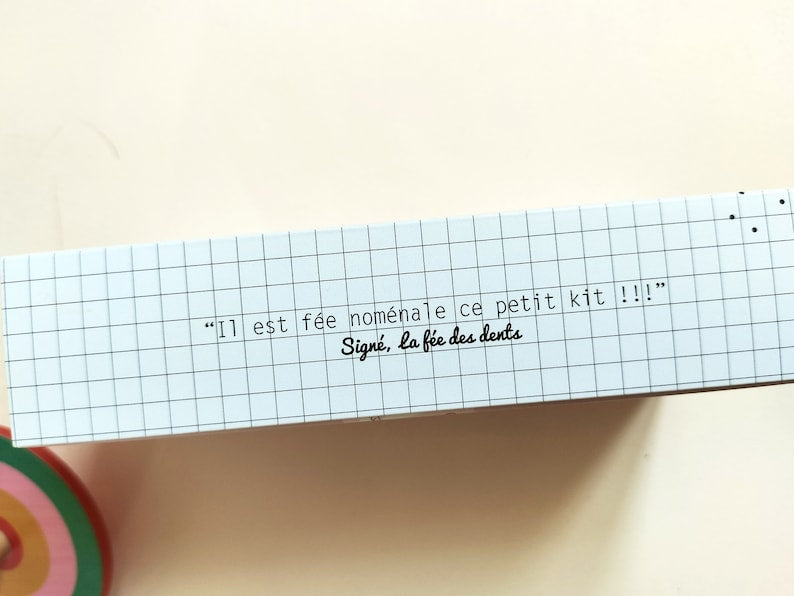 “Il est fée noménale ce petit kit !!!”
Signé, la fée des dents